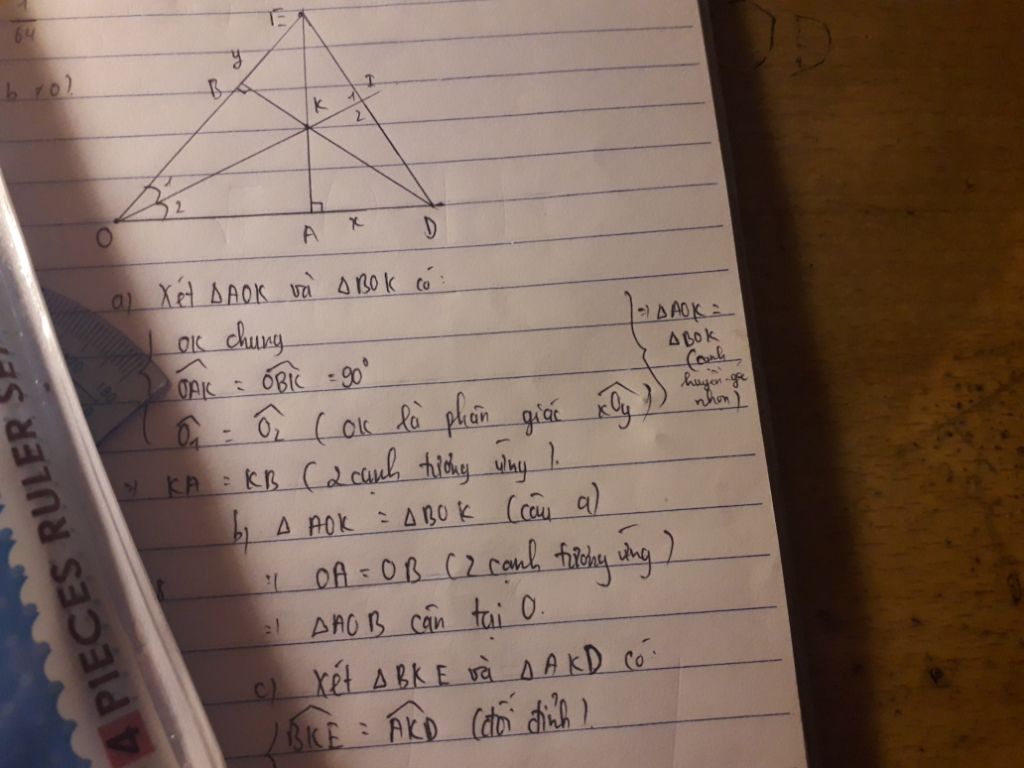 1
64
b ≠ 0)
E
y
B
K
1
I
2
1
2
O
A
x
D
a) Xét ΔAOK và ΔBOK có:
OK chung
OAK = OBK = 90°
Ô1 = Ô2 (OK là phân giác xOy)
=> ΔAOK =
ΔBOK
(cạnh
huyền-góc
nhọn)
=> KA = KB (2 cạnh tương ứng).
b) ΔAOK = ΔBOK (câu a)
=> OA = OB (2 cạnh tương ứng)
=> ΔAOB cân tại O.
c) Xét ΔBKE và ΔAKD có:
BKE = AKD (đối đỉnh).
4 PIECES RULER SE